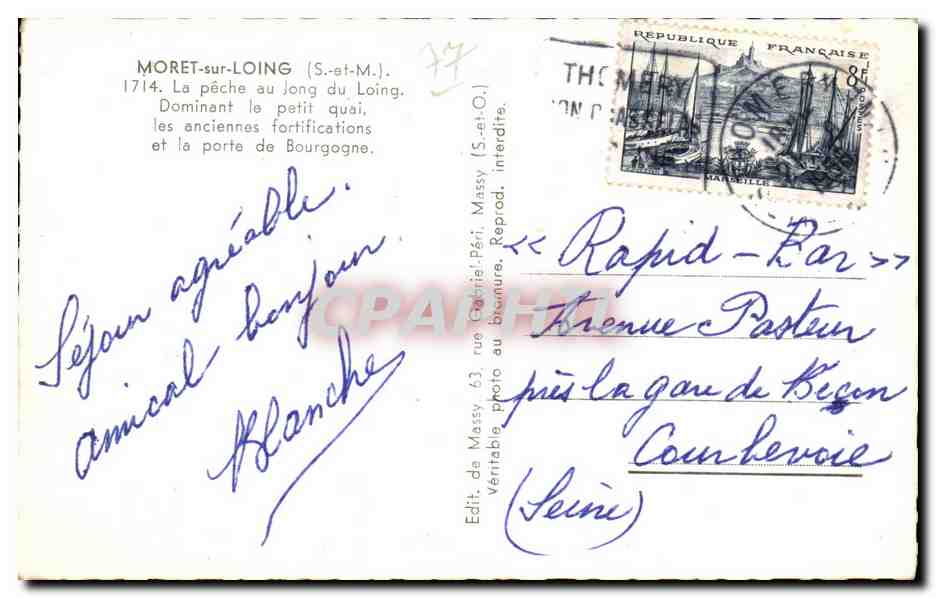 MORET-sur-LOING (S.-et-M.).
1714. La pêche au Jong du Loing.
Dominant le petit quai,
les anciennes fortifications
et la porte de Bourgogne.
77
Séjour agréable.
amical bonjour.
Blanche
Edit. de Massy 63, rue Gabriel-Péri, Massy (S.-et-O.)
Véritable photo au bromure. Reprod. interdite.
REPUBLIQUE FRANÇAISE
8F
POSTES
MARSEILLE
THOMERY
« Rapid-Bar »
Avenue Pasteur
près la gare de Bécon
Courbevoie
(Seine)
CPAPHIL